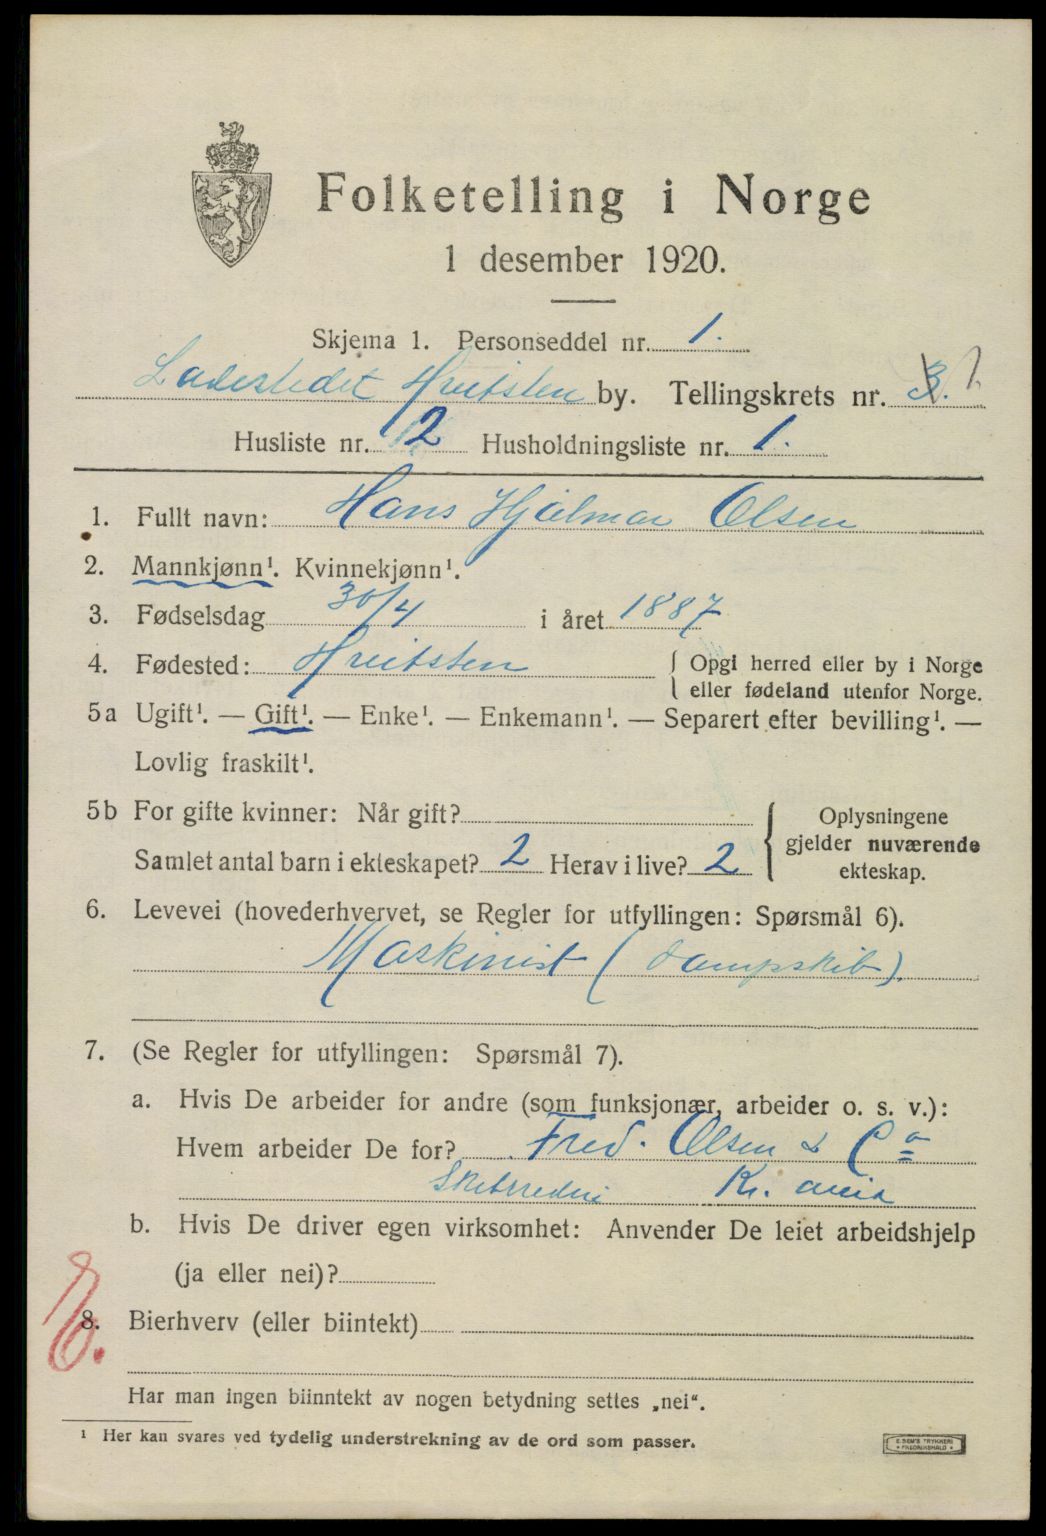 Folketelling i Norge
1 desember 1920.
Skjema 1. Personseddel nr. 1.
Ladestedet Hvitsten by. Tellingskrets nr. 3. 1
Husliste nr. 2 Husholdningsliste nr. 1.
1. Fullt navn: Hans Hjalmar Olsen
2. Mannkjønn¹. Kvinnekjønn¹.
3. Fødselsdag 30/4 i året 1887
4. Fødested: Hvitsten { Opgi herred eller by i Norge
eller fødeland utenfor Norge.
5a Ugift¹. — Gift¹. — Enke¹. — Enkemann¹. — Separert efter bevilling¹. —
Lovlig fraskilt¹.
5b For gifte kvinner: Når gift?
Samlet antal barn i ekteskapet? 2 Herav i live? 2
{ Oplysningene
gjelder nuværende
ekteskap.
6. Levevei (hovederhvervet, se Regler for utfyllingen: Spørsmål 6).
Maskinist (dampskib).
7. (Se Regler for utfyllingen: Spørsmål 7).
a. Hvis De arbeider for andre (som funksjonær, arbeider o. s. v.):
Hvem arbeider De for? Fred. Olsen & Co
Skibsrederi Kr. ania
b. Hvis De driver egen virksomhet: Anvender De leiet arbeidshjelp
(ja eller nei)?
8. Bierhverv (eller biintekt)
Har man ingen biinntekt av nogen betydning settes „nei“.
¹ Her kan svares ved tydelig understrekning av de ord som passer.
E. SEM'S TRYKKERI
FREDRIKSHALD